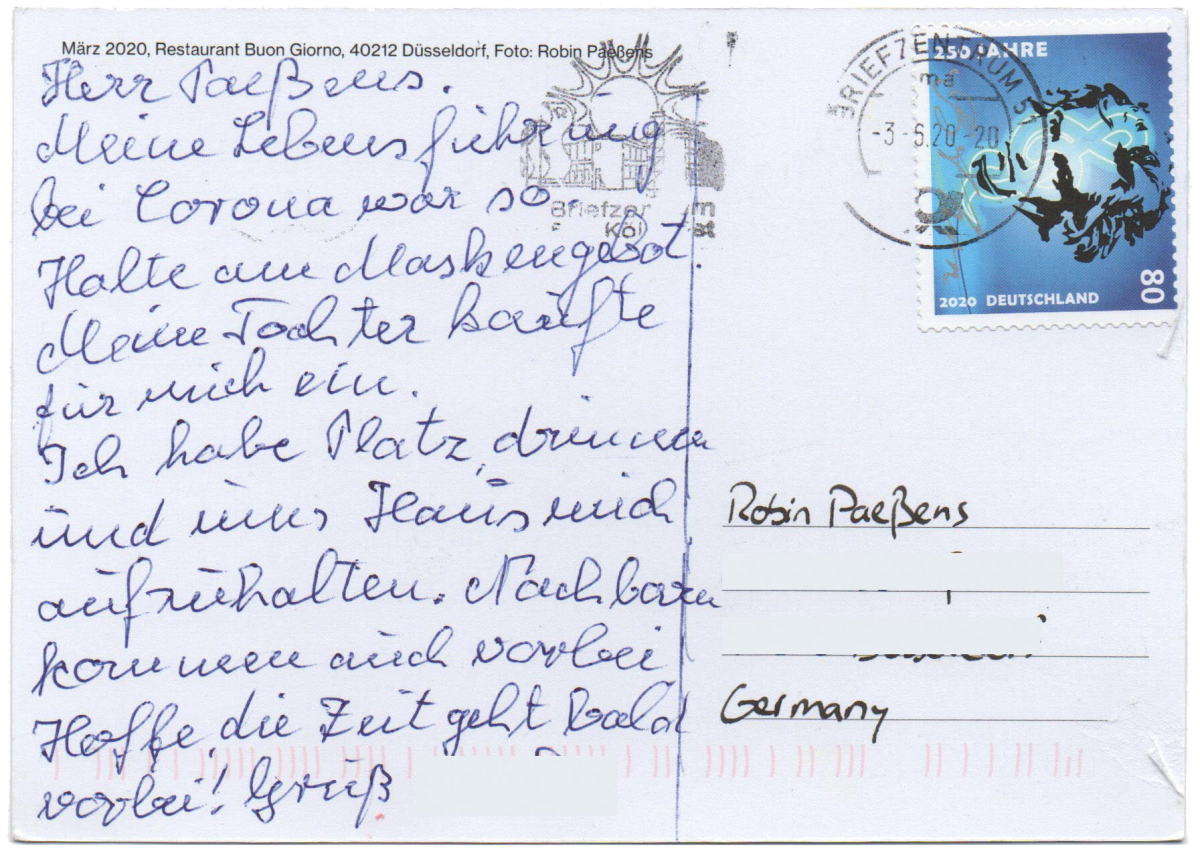 März 2020, Restaurant Buon Giorno, 40212 Düsseldorf, Foto: Robin Paeßens
Herr Paeßens.
Meine Lebensführung
bei Corona war so.
Halte am Maskengebot.
Meine Tochter kaufte
für mich ein.
Ich habe Platz, drinnen
und ums Haus mich
aufzuhalten. Nachbarn
kommen auch vorbei
Hoffe, die Zeit geht bald
vorbei! Gruß
Briefzen
Köl
BRIEFZENTRUM 5
ma
-3-6.20-20
250 JAHRE
2020 DEUTSCHLAND
80
Robin Paeßens
Germany